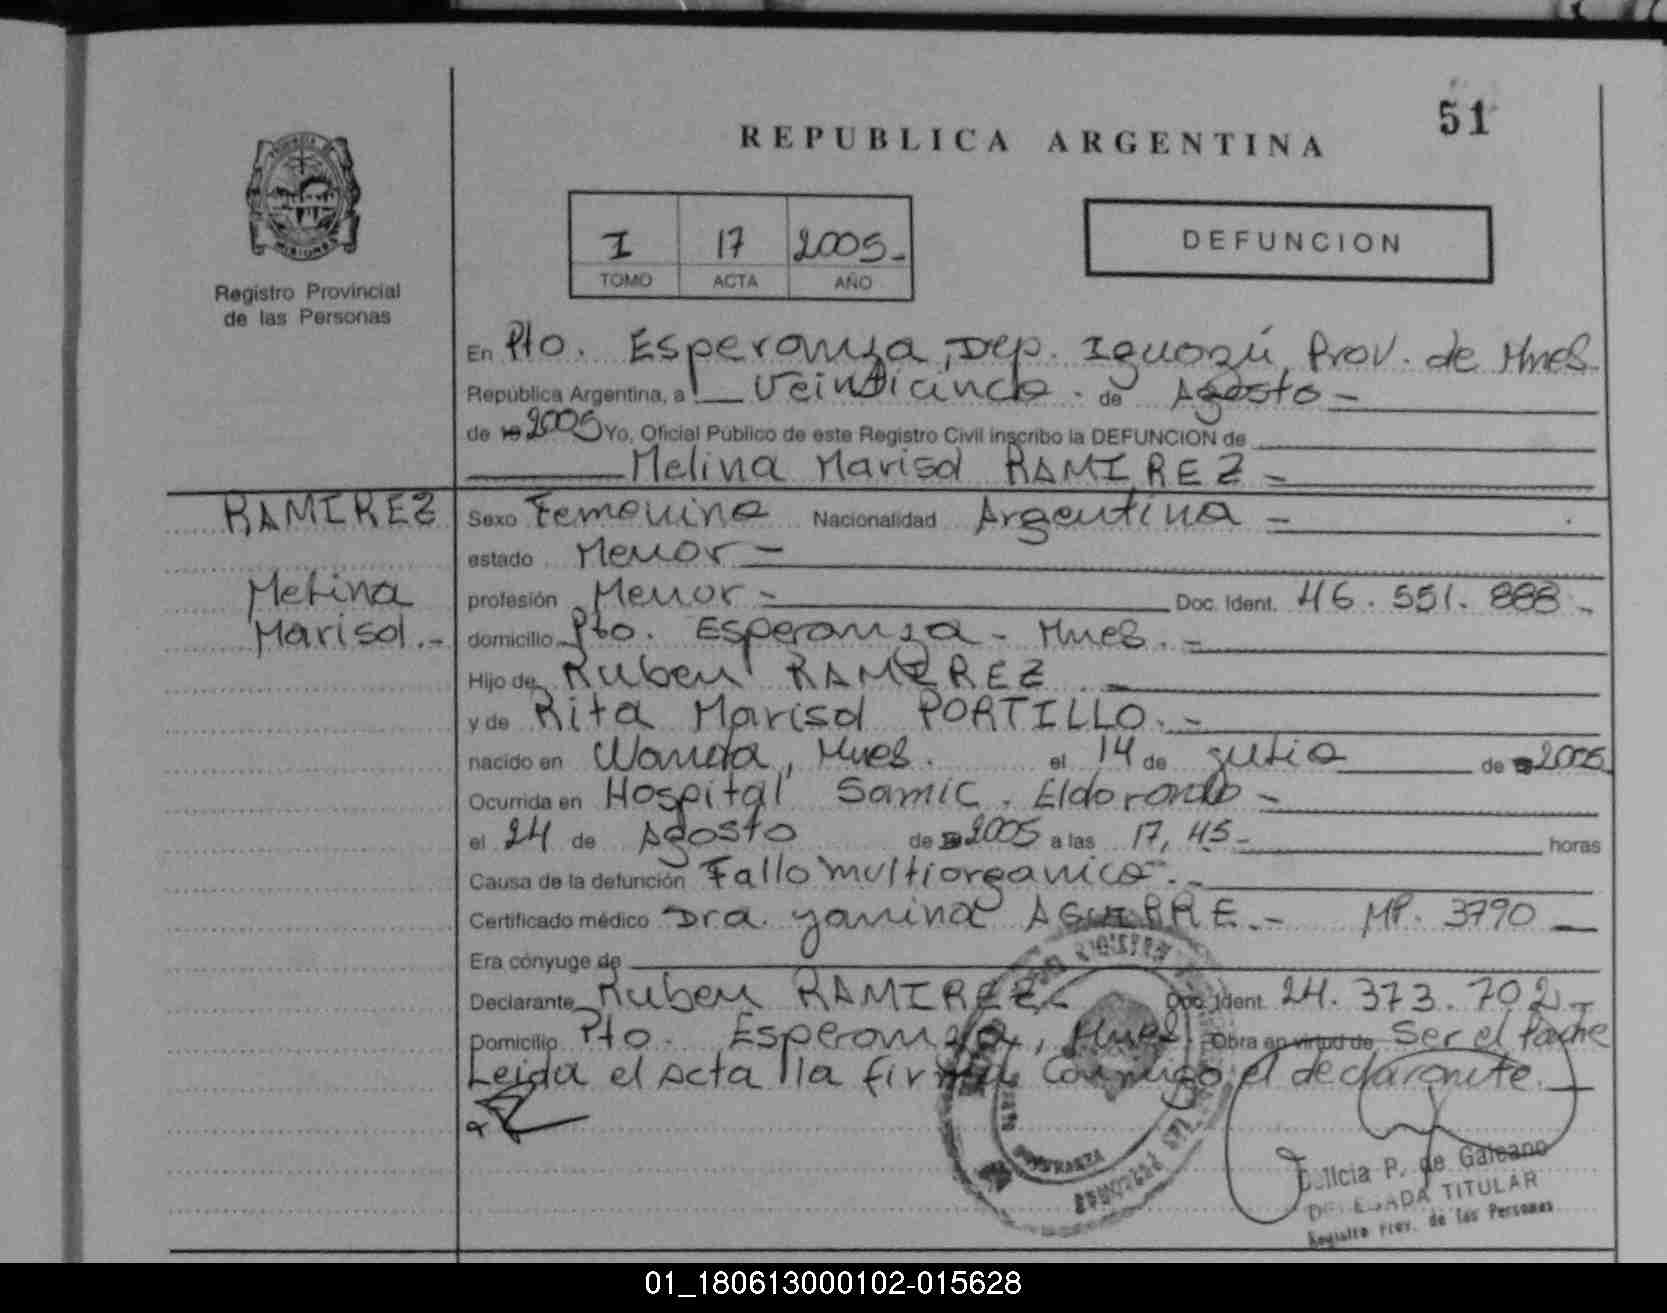 51
REPUBLICA ARGENTINA
I 17 2005-
TOMO ACTA AÑO
DEFUNCION
MISIONES
Registro Provincial
de las Personas
En Pto. Esperanza, Dep. Iguazú, Prov. de Mnes.
República Argentina, a Veinticinco. de Agosto-
de 19 2005 Yo, Oficial Público de este Registro Civil inscribo la DEFUNCION de
Melina Marisol RAMIREZ-
RAMIREZ
Melina
Marisol.-
Sexo Femenino Nacionalidad Argentina-
estado Menor-
profesión Menor- Doc. Ident. 46.551.888-
domicilio Pto. Esperanza- Mnes.-
Hijo de Ruben RAMIREZ
y de Rita Marisol PORTILLO.-
nacido en Wanda, Mnes. el 14 de julio de 2005
Ocurrida en Hospital Samic. Eldorado-
el 24 de Agosto de 2005 a las 17,45- horas
Causa de la defunción Fallo multiorganico.-
Certificado médico Dra. yanina AGUIRRE.- MP. 3790
Era cónyuge de
Declarante Ruben RAMIREZ- Doc. Ident. 24.373.702-
Domicilio Pto. Esperanza, Mnes. Obra en virtud de Ser el Padre
Leida el Acta la firma Conmigo el declarante.
ESPERANZA
P. de Galeano
DELEGADA TITULAR
Registro Prov. de las Personas
01_180613000102-015628